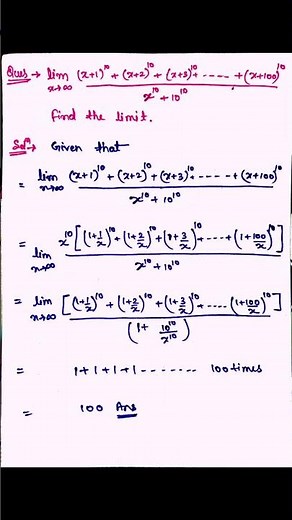 Ques → lim x→∞ (x+1)^10 + (x+2)^10 + (x+3)^10 + ----- + (x+100)^10 / x^10 + 10^10
find the limit.
Solⁿ → Given that
= lim x→∞ (x+1)^10 + (x+2)^10 + (x+3)^10 + ----- + (x+100)^10 / x^10 + 10^10
= lim x→∞ x^10 [(1+1/x)^10 + (1+2/x)^10 + (1+3/x)^10 + ---- + (1+100/x)^10] / x^10 + 10^10
= lim x→∞ [(1+1/x)^10 + (1+2/x)^10 + (1+3/x)^10 + .... (1+100/x)^10] / (1 + 10^10/x^10)
= 1+1+1+1 -------- 100 times
= 100 Ans